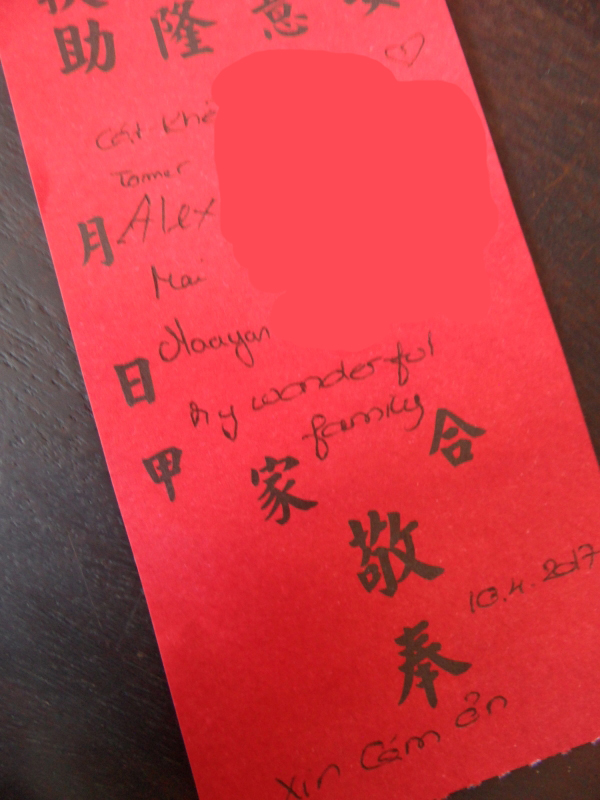 助 隆 意
Cát Khê
Tomer
月 Alex
Mai
日 Naayan
My wonderful
family
甲 家 合
敬
10.4.2017
奉
Xin Cám ơn